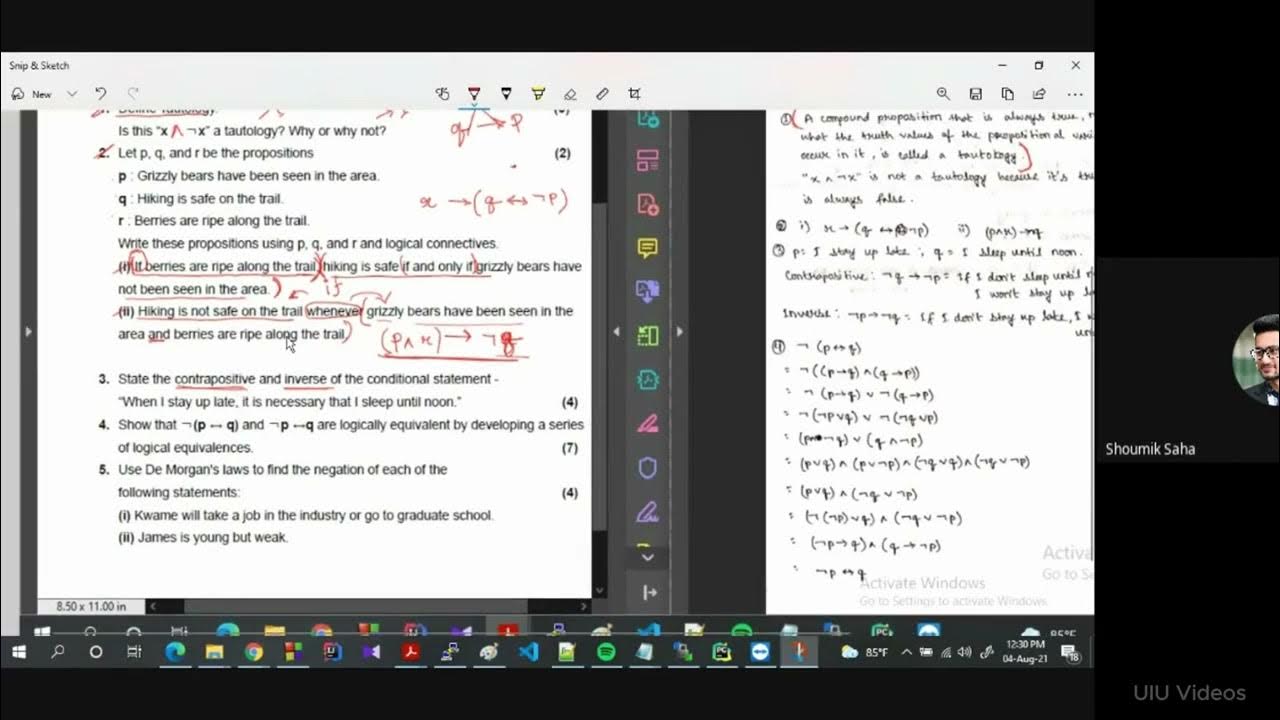 Snip & Sketch
New
Is this "x ∧ ¬x" a tautology? Why or why not?
q → p
2. Let p, q, and r be the propositions (2)
p : Grizzly bears have been seen in the area.
q : Hiking is safe on the trail.
r : Berries are ripe along the trail.
r → (q ↔ ¬p)
Write these propositions using p, q, and r and logical connectives.
(i) If berries are ripe along the trail, hiking is safe if and only if grizzly bears have
not been seen in the area.
if
(ii) Hiking is not safe on the trail whenever grizzly bears have been seen in the
area and berries are ripe along the trail.
(p∧r) → ¬q
3. State the contrapositive and inverse of the conditional statement -
"When I stay up late, it is necessary that I sleep until noon." (4)
4. Show that ¬(p ↔ q) and ¬p ↔q are logically equivalent by developing a series
of logical equivalences. (7)
5. Use De Morgan's laws to find the negation of each of the
following statements: (4)
(i) Kwame will take a job in the industry or go to graduate school.
(ii) James is young but weak.
8.50 x 11.00 in
① A compound proposition that is always true,
what the truth values of the propositional
occur in it, is called a tautology.
"x ∧ ¬x" is not a tautology because it's
is always false.
② i) r → (q ↔ ¬p) ii) (p∧r)→¬q
③ p: I stay up late ; q = I sleep until noon.
Contrapositive: ¬q → ¬p = if I don't sleep until
I won't stay up
Inverse: ¬p → ¬q = if I don't stay up late, I
④ ¬ (p↔q)
= ¬((p→q) ∧ (q→p))
= ¬ (p→q) ∨ ¬(q→p)
= ¬(¬p∨q) ∨ ¬(¬q∨p)
= (p∧¬q) ∨ (q ∧¬p)
= (p∨q) ∧ (p∨¬p) ∧ (¬q∨q) ∧ (¬q∨¬p)
= (p∨q) ∧ (¬q ∨ ¬p)
= (¬(¬p)∨q) ∧ (¬q∨¬p)
= (¬p→q) ∧ (q→¬p)
= ¬p↔q
Activate Windows
Go to Settings to activate Windows.
Activa
Go to S
Shoumik Saha
85°F
85°F
12:30 PM
04-Aug-21
18
UIU Videos